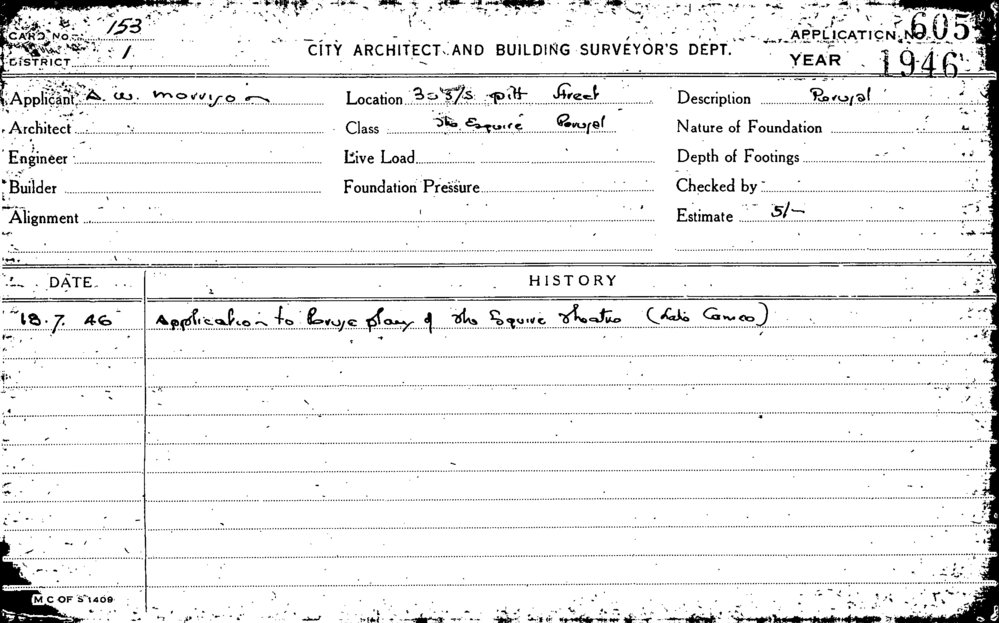 CARD No. 153
CITY ARCHITECT AND BUILDING SURVEYOR'S DEPT.
APPLICATION No. 605
DISTRICT 1
YEAR 1946
Applicant A. W. Morrison Location Pitt Street Description Perusal
Architect Class The Esquire Perusal Nature of Foundation
Engineer Live Load Depth of Footings
Builder Foundation Pressure Checked by
Alignment Estimate 5/-
DATE HISTORY
18.7.46 Application to Peruse plans of The Esquire Theatre (Late Cameo)
M C OF S 1409